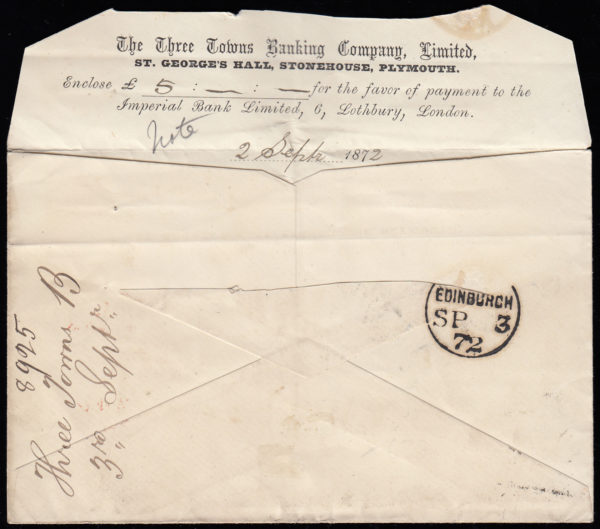 The Three Towns Banking Company, Limited,
ST. GEORGE'S HALL, STONEHOUSE, PLYMOUTH.
Enclose £ 5 : — : — for the favor of payment to the
Imperial Bank Limited, 6, Lothbury, London.
Note
2 Septr 1872
EDINBURGH
SP 3
72
8925
Three Towns B
3rd Septr